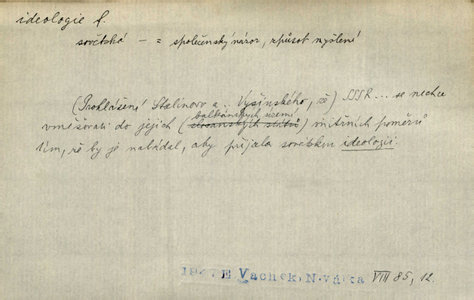 ideologie f.
sovětská — = společenský názor, způsob myšlení
(Prohlášení Stalinovo a .. Vyšinského, že) SSSR ... se nechce
balkánských území
vměšovati do jejich (slovanských států) vnitřních poměrů
tím, že by je nabádal, aby přijala sovětskou ideologii.
E Vachek, N. VIII 85, 12.